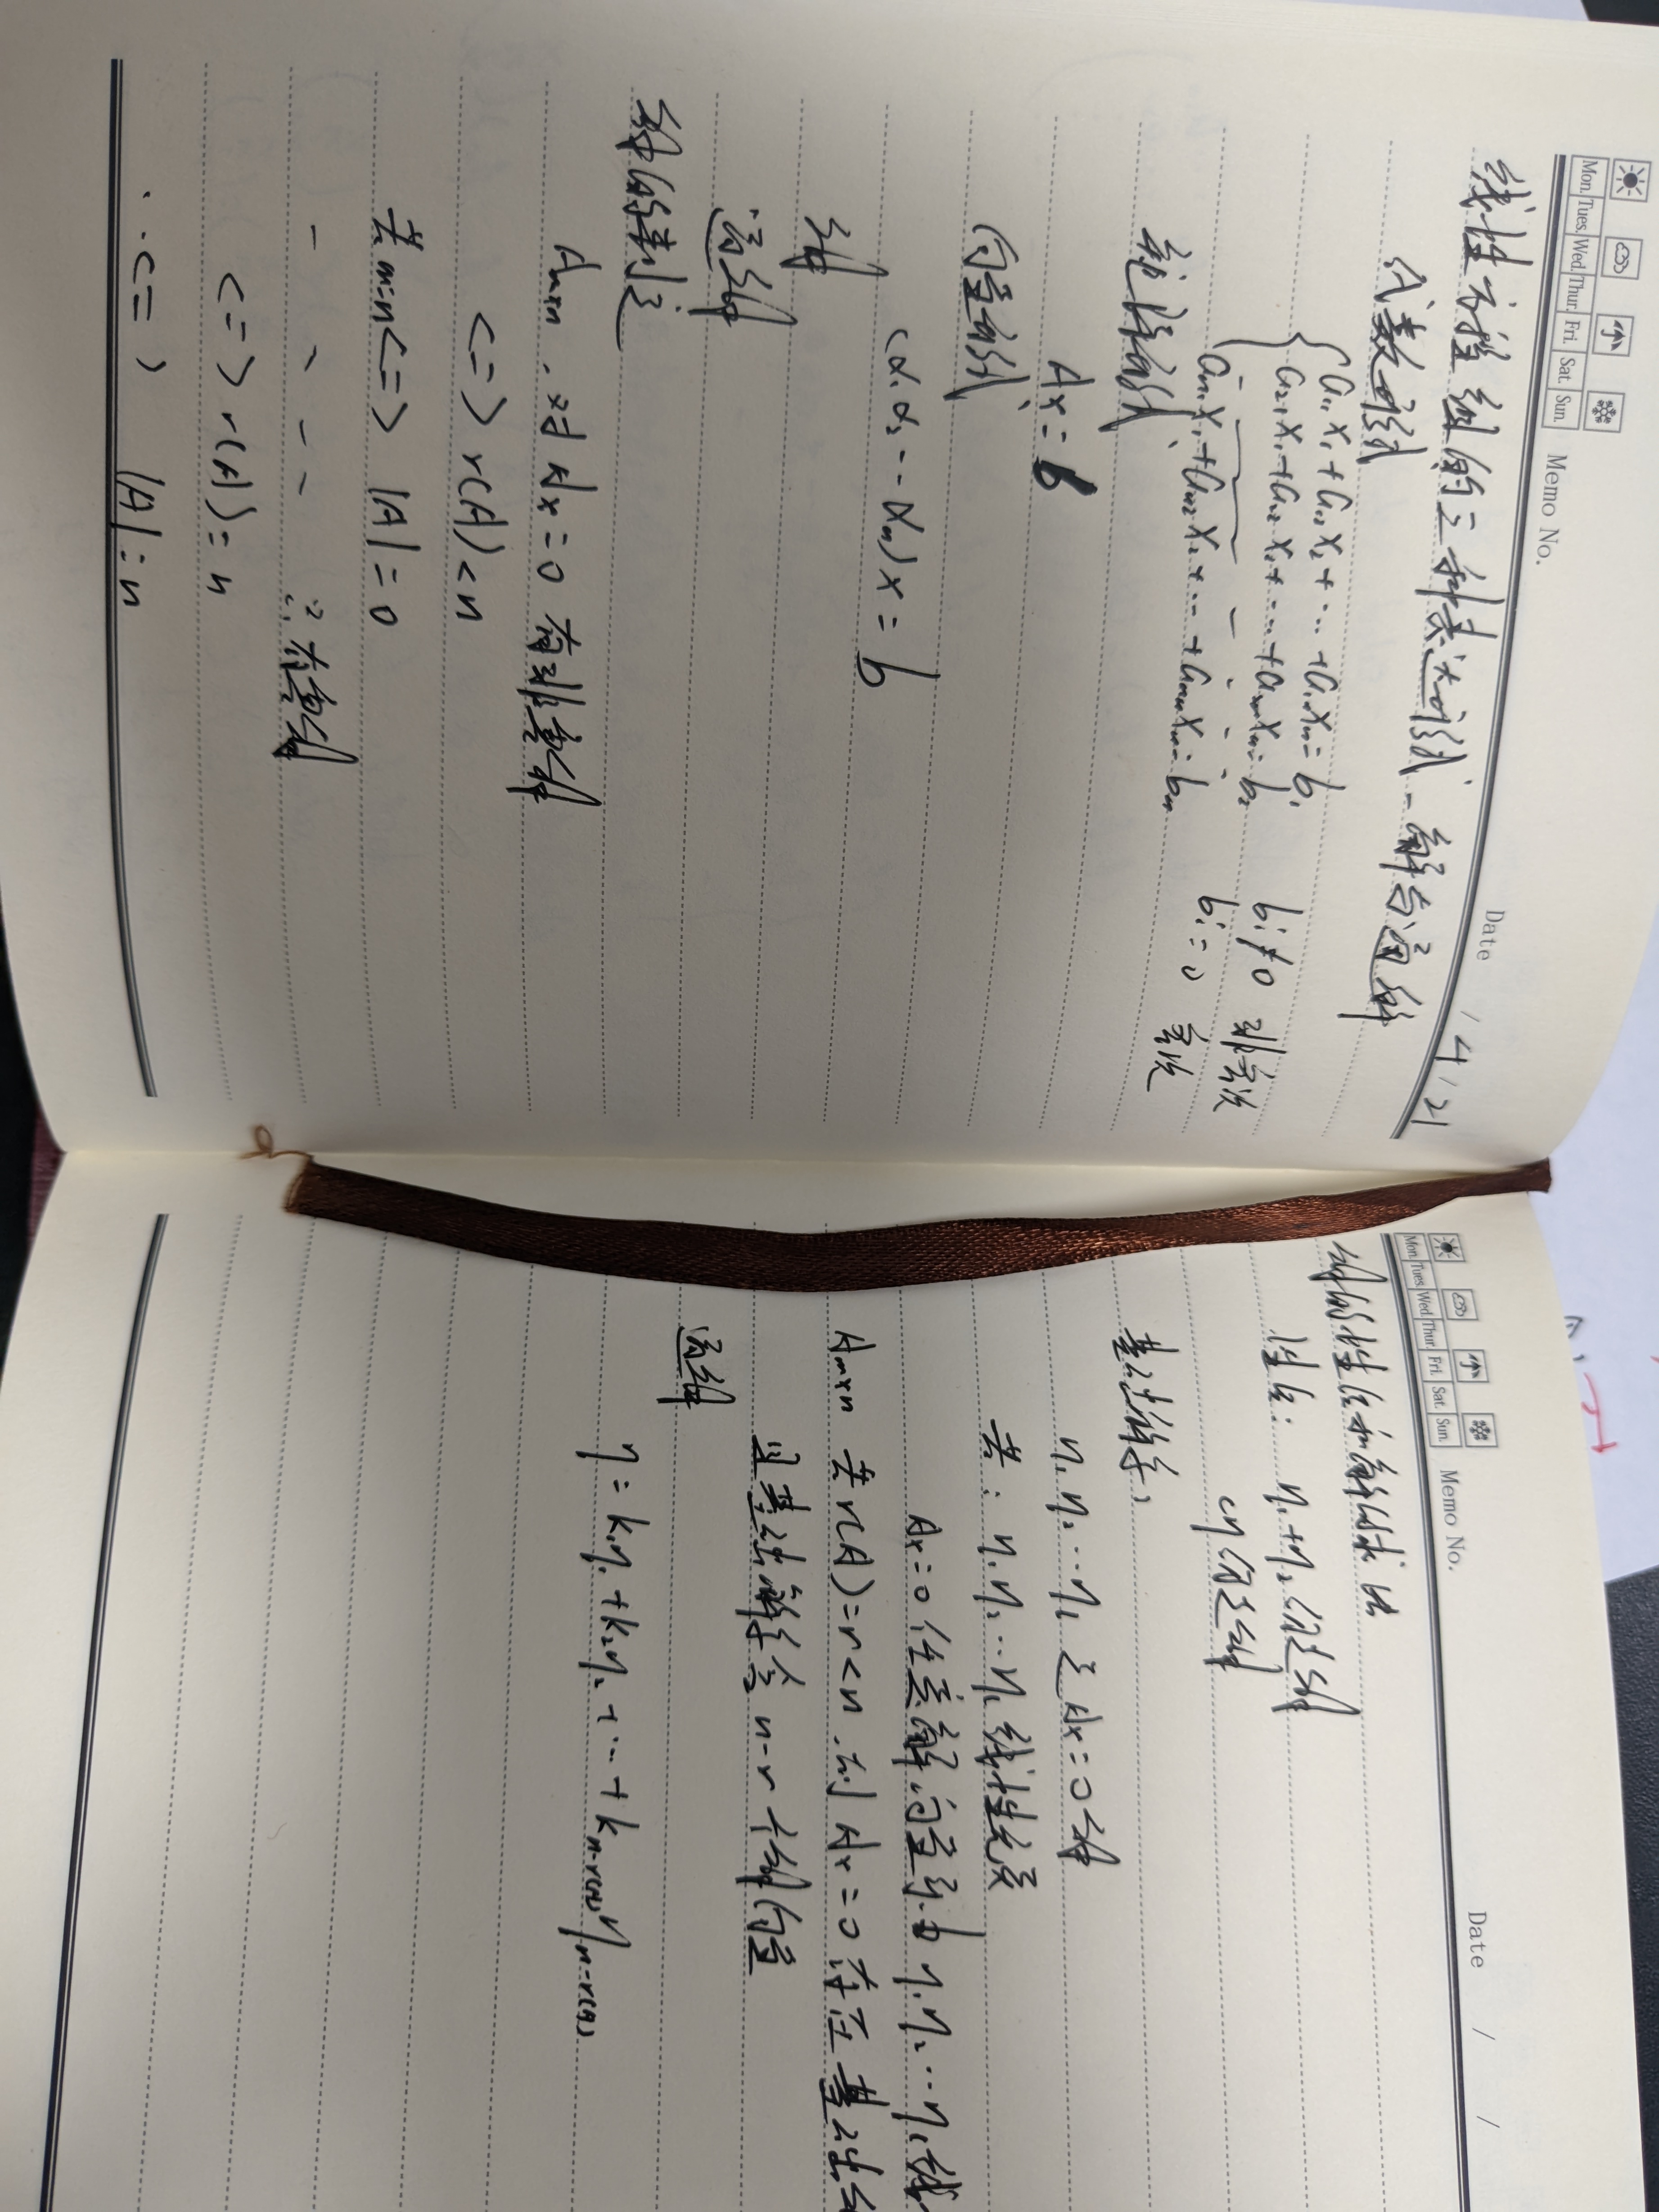 Mon. Tues. Wed. Thur. Fri. Sat. Sun.
Memo No.
Date / 4 / 21
线性方程组的三种表达形式 - 解与通解
代数形式
a₁₁x₁ + a₁₂x₂ + … + a₁ₙxₙ = b₁
a₂₁x₁ + a₂₂x₂ + … + a₂ₙxₙ = b₂ bᵢ ≠ 0 非齐次
aₘ₁x₁ + aₘ₂x₂ + … + aₘₙxₙ = bₘ bᵢ = 0 齐次
矩阵形式
Ax = b
向量形式
(α₁ α₂ -- αₙ) x = b
解
通解
解的判定
Aₘₓₙ . 对 Ax = 0 有非零解
<=> r(A) < n
若 m=n <=> |A| = 0
有零解
<=> r(A) = n
<=> |A| = n
Mon. Tues. Wed. Thur. Fri. Sat. Sun.
Memo No.
Date / /
解的性质和解的求法
性质: η₁ + η₂ 仍是解
cη 仍是解
基础解系
η₁ η₂ … ηₜ 是 Ax = 0 解
若: η₁ η₂ … ηₜ 线性无关
Ax = 0 任意解向量可由 η₁ η₂ … ηₜ 线
Aₘₓₙ 若 r(A) = r < n . 则 Ax = 0 存在基础
且基础解系含 n-r 个解向量
通解
η = k₁η₁ + k₂η₂ + … + kₙ₋ᵣ₍A₎ηₙ₋ᵣ₍A₎